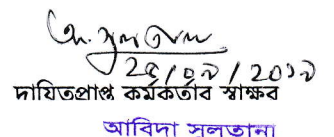 ২৫/০৯/২০১৯
দায়িতপ্রাপ্ত কর্মকর্তার স্বাক্ষর
আবিদা সুলতানা